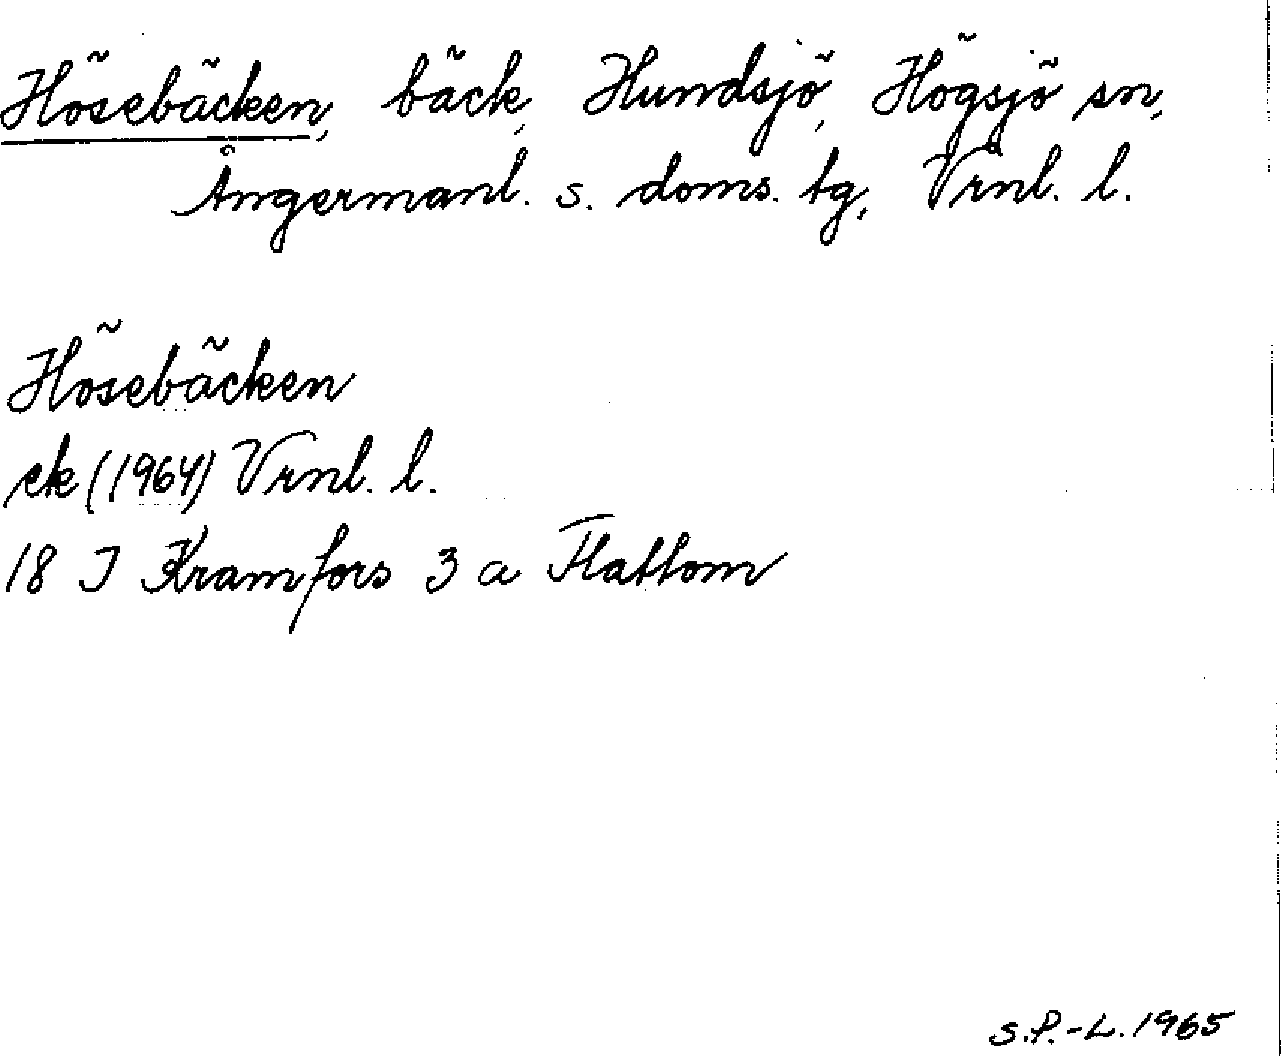 Hösebäcken, bäck, Hundsjö, Högsjö sn,
Ångermanl. s. doms. tg, Vrnl. l.
Hösebäcken
ek (1964) Vrnl. l.
18 I Kramfors 3 a Flattom
S.P.-L. 1965